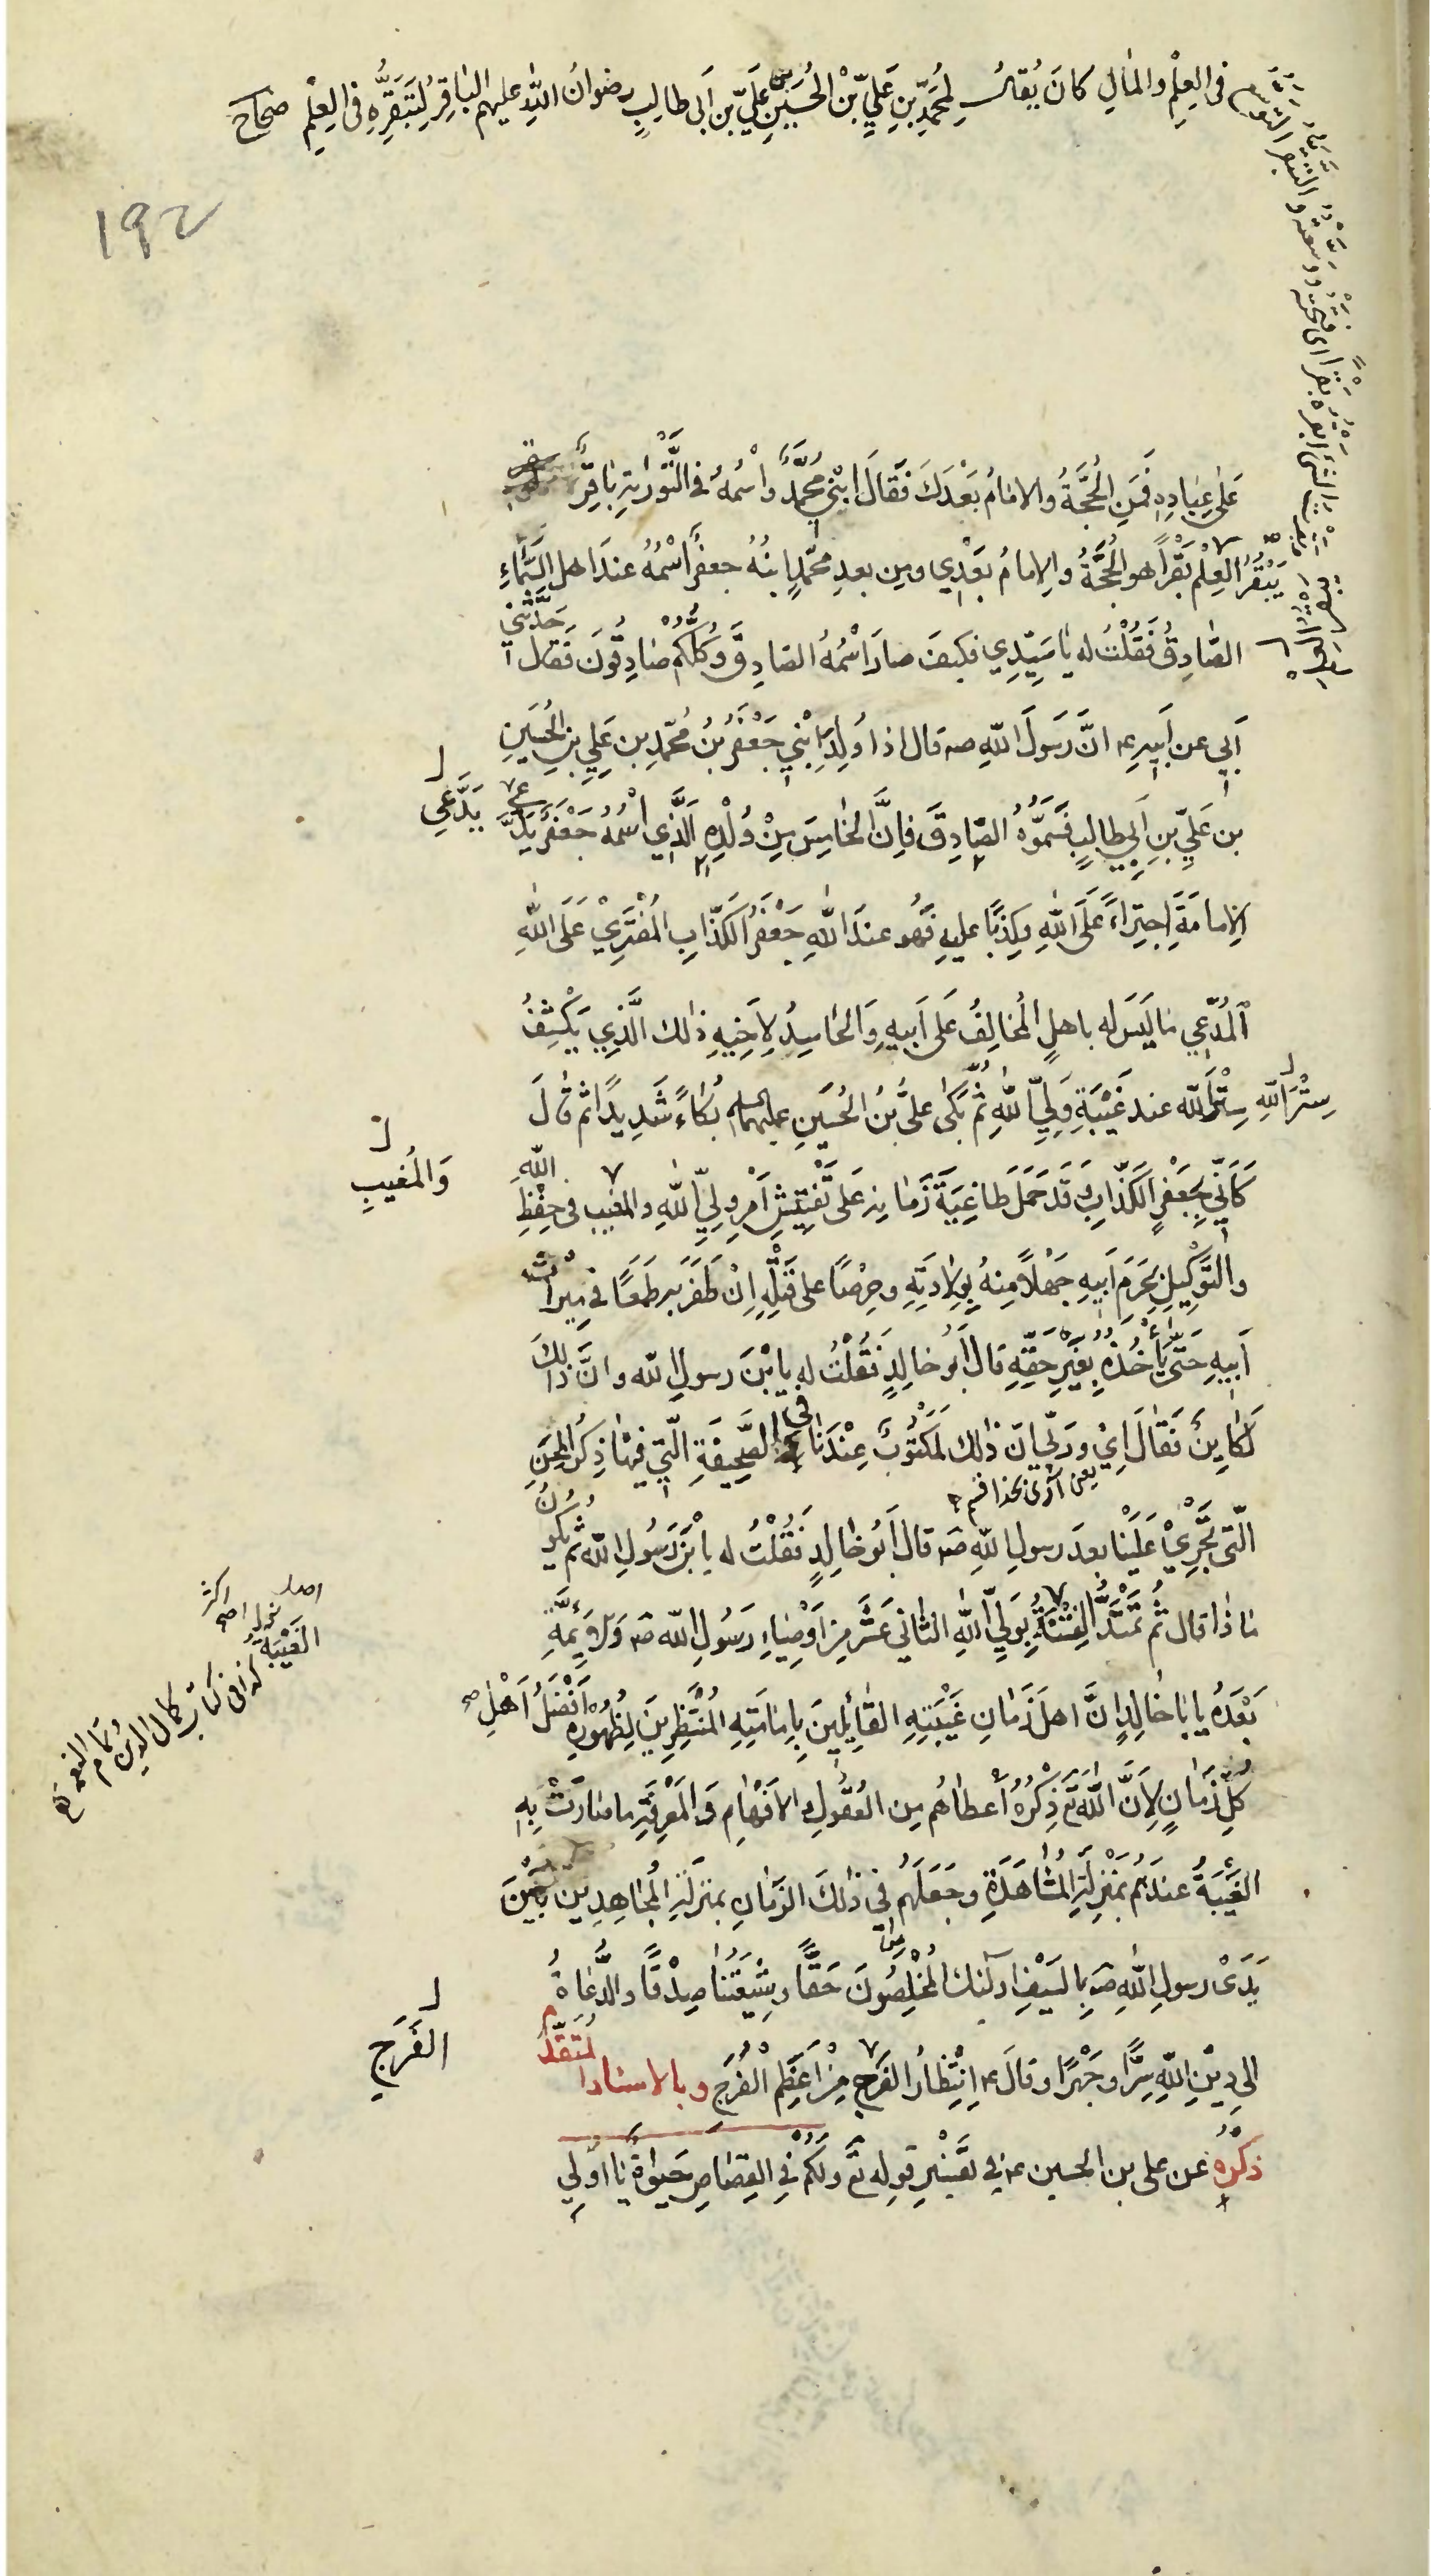 في العِلْمِ والمٰالِ كانَ يُقالُ لِمُحَمَّدِ بْنِ عَلِيِّ بْنِ الْحُسَيْنِ بن عَلِيِّ بن اَبي طالِبٍ رضوانُ اللهِ عليهم الباقِرُ لِتَبَقُّرِهِ في العِلْمِ صحاح
بَقَرْتُ الشَّيْءَ اَبْقُرُهُ بَقْرًا اى فَتَحْتُه ووسّعْتُه والتَبَقُّر التَّوَسُّع
١٩٢
عَلىٰ عِبٰادِهِ فَمَنِ الْحُجَّةُ والاِمٰامُ بَعْدَكَ فَقٰالَ ابْنِي مُحَمَّدٌ وَاسْمُهُ فِي التَّوْرٰيةِ بٰاقِرٌ
يَبْقُرُ الْعِلْمَ بَقْراً هو الْحُجَّةُ والاِمامُ بَعْدِي ومِن بعدِ محمّدٍ ابنُهُ جعفرٌ اسْمُهُ عندَ اهل السَّمٰاءِ
الصّٰادِقُ فَقُلْتُ له يٰا سَيِّدِي فكيفَ صارَ اسْمُهُ الصّادِقَ وَكُلُّكُمْ صٰادِقُونَ فَقٰال حَدَّثَنِي
اَبي عن اَبيهِ ع انَّ رَسُولَ اللهِ صه قال اذا وُلِدَ ابْنِي جَعْفَرُ بْنُ مُحَمّدِ بن عَلِيِّ بنِ الحُسَيْنِ
بن عَلِيِّ بنِ اَبي طالِبٍ فَسَمُّوهُ الصّٰادِقَ فَاِنَّ الْخٰامِسَ مِنْ وُلْدِهِ الَّذِي اسْمُهُ جَعْفَرٌ يَدَّعي
يَدَّعِي
الاِمامَةَ اِجتِرٰاءً عَلَى اللهِ وكِذْبًا عليهِ فَهُو عندَ اللهِ جَعْفَرُ الكَذّٰابِ الْمُفْتَرِيْ عَلَى اللهِ
اَلْمُدَّعِي مٰا لَيْسَ له باهلٍ الْمُخٰالِفُ عَلىٰ اَبيهِ وَالْحٰاسِدُ لِاَخِيهِ ذٰلك الَّذِي يَكْشِفُ
سِتْرَ اللهِ عند غَيْبَةِ وَلِيِّ اللهِ ثُمَّ بَكىٰ عليُّ بنُ الحُسَينِ عليهما السلم بُكٰاءً شَدِيدًا ثم قٰالَ
كَاَنِّي بِجَعْفَرٍ الكَذّٰابِ وقَد حَمَلَ طٰاغِيَةَ زَمٰانِهِ عَلىٰ تَفْتِيشِ اَمْرِ وَلِيِّ اللهِ والمغيب في حِفْظِ اللهِ
وَالْمُغيبِ
والتَّوْكِيلِ بِحَرَمِ اَبيهِ جَهْلاً مِنهُ بِوِلادَتِهِ وحِرْصًا على قَتْلِهِ اِنْ ظَفَرَ به طَمَعًا في مِيراثِ
اَبيهِ حَتّىٰ يَاْخُذَهُ بِغَيْرِ حَقِّهِ قالَ اَبُو خٰالِدٍ فَقُلْتُ له يا ابْنَ رسولِ الله وانَّ ذٰلِكَ
لَكٰائِنٌ فَقٰالَ اِيْ ورَبّي انّ ذٰلك لَمَكْتُوبٌ عِنْدَنٰا في الصَّحِيفَةِ الّتي فيهٰا ذِكْرُ الْمِحَنِ
الّتي تَجْرِيْ عَلَيْنٰا بعدَ رسولِ اللهِ صه قال اَبُو خٰالِدٍ فَقُلْتُ له يا ابْنَ رَسُولِ الله ثم يَكُونُ
مٰا ذٰا قال ثُمَّ تَمْتَدُّ الْفِتْنَةُ بِوَلِيِّ اللهِ الثّاني عَشَرَ مِنْ اَوْصِيٰاءِ رَسُولِ الله صه وَالاَئِمَّةِ
الغَيْبَة
كذا في كتاب كمال الدين وتمام النعمة
بَعْدَهُ يا اَبا خٰالِدٍ اِنَّ اهلَ زَمٰانِ غَيْبَتِهِ القٰائِلِينَ بِاِمٰامَتِهِ الْمُنْتَظِرِينَ لِظُهُورِهِ اَفْضَلُ اَهْلِ
كُلِّ زَمٰانٍ لِاَنَّ اللهَ تَع ذِكْرُهُ اَعطٰاهُم مِن العُقُولِ والاَفْهٰامِ وَالْمَعْرِفَةِ مٰا صٰارَتْ بِهِ
الغَيْبَةُ عندَهُم بمَنْزِلَةِ الْمُشٰاهَدَةِ وجَعَلَهُم في ذٰلكَ الزَمٰانِ بمَنزلَةِ الْمُجٰاهِدِين بَيْنَ
يَدَىْ رسولِ اللهِ صه بِالسَيْفِ اولٰئك الْمُخْلِصُونَ حَقًّا وشِيْعَتُنٰا صِدْقًا والدُّعٰاةُ
الى دِيْنِ اللهِ سِرًّا وجَهْرًا وقالَ ع اِنْتِظٰارُ الفَرَجِ مِنْ اَعْظَمِ الْفَرَجِ وبالاسناد المُتَقَدِّمِ
الفَرَجِ
ذكرُهُ عن على بن الحسين ع في تفسيرِ قوله تَع ولكُمْ فِي القِصٰاصِ حَيٰوةٌ يٰا اُولِي